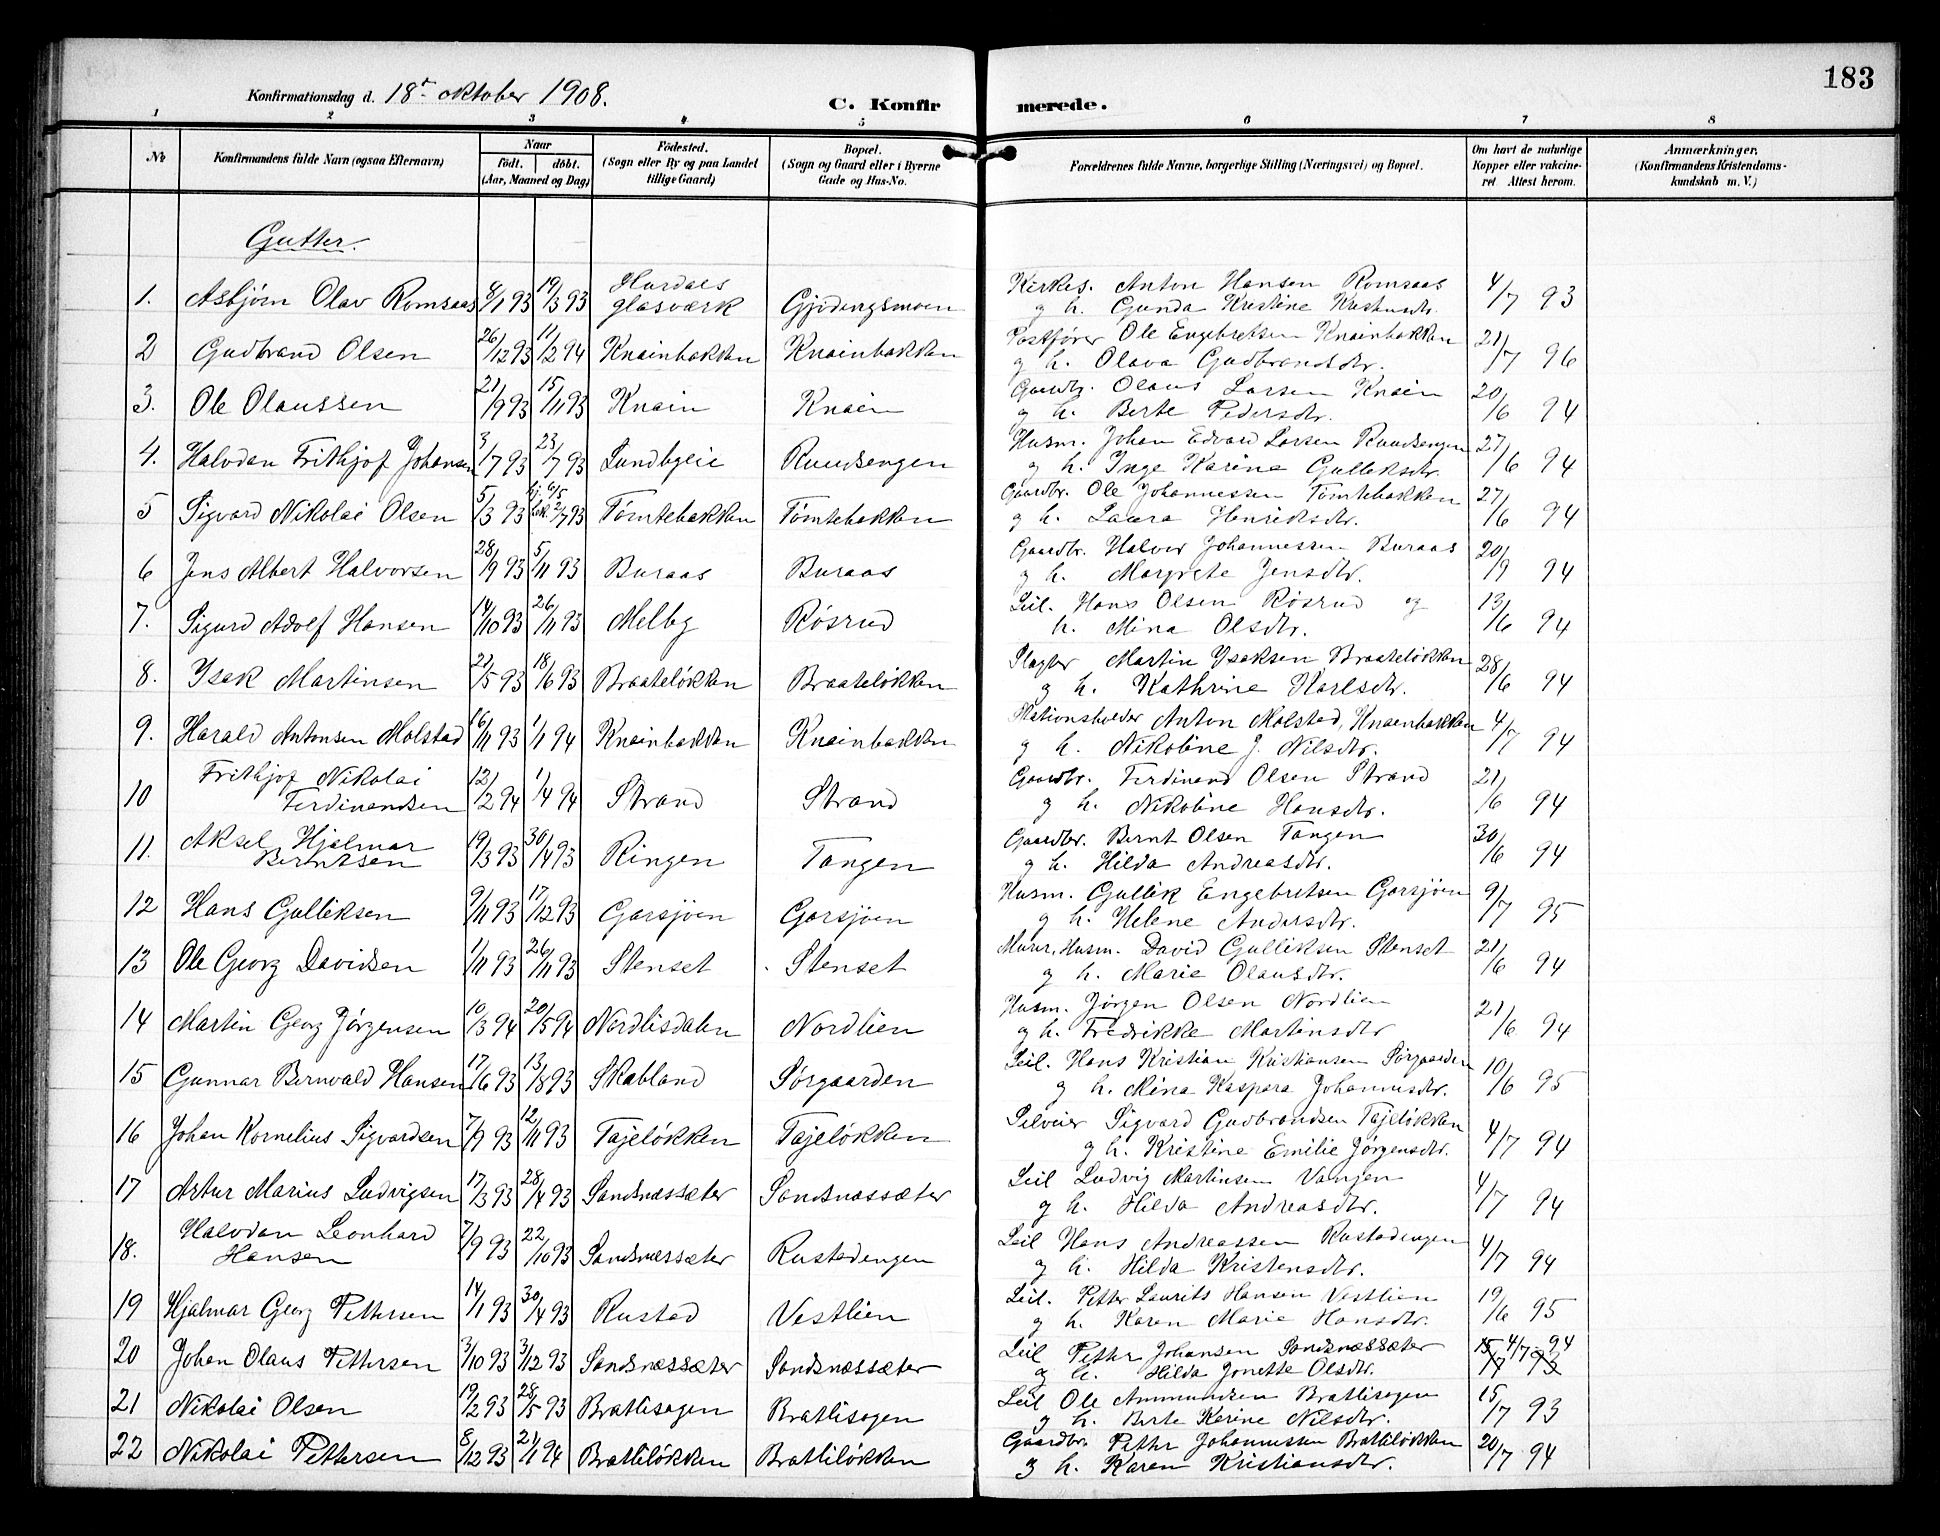 183
Konfirmationsdag d. 18de oktober 1908.
C. Konfirmerede.
1 2 3 4 5 6 7 8
No
Konfirmandens fulde Navn (ogsaa Efternavn)
Naar
født. døbt.
(Aar, Maaned og Dag)
Fødested.
(Sogn eller By og paa Landet
tillige Gaard)
Bopæl.
(Sogn og Gaard eller i Byerne
Gade og Hus-No.
Forældrenes fulde Navne, borgerlige Stilling (Næringsvei) og Bopæl.
Om havt de naturlige
Kopper eller vakcine-
ret Attest herom.
Anmærkninger,
(Konfirmandens Kristendoms-
kundskab m. V.)
Gutter.
1. Asbjørn Olav Romsaas 8/1 93 19/3 93 Hurdals glasværk Gjødingsmoen Kirkes. Anton Hansen Romsaas 4/7 93
og h. Gunda Kristine Kristensdtr.
2 Gudbrand Olsen 26/12 93 11/2 94 Knainbakken Knainbakken Postfører Ole Engebretsen Knainbakken 21/7 96
og h. Olava Gudbrandsdtr.
3. Ole Olaussen 21/9 93 15/11 93 Knain Knain Gaardbr. Olaus Larsen Knain 20/6 94
og h. Berte Pedersdtr.
4. Halvdan Frithjof Johansen 3/7 93 23/7 93 Lundbyeie Ruudsengen Husm. Johan Edvard Larsen Ruudsengen 27/6 94
og h. Inge Karine Gulleksdtr.
5 Sigvard Nikolai Olsen 5/3 93 hj. 6/5 bek. 2/7 93 Tømtebakken Tømtebakken Gaardbr. Ole Johannessen Tømtebakken 27/6 94
og h. Laura Henriksdtr.
6 Jens Albert Halvorsen 28/9 93 5/11 93 Buraas Buraas Gaardbr. Halvor Johannessen Buraas 20/9 94
og h. Margrete Jensdtr.
7. Sigurd Adolf Hansen 14/10 93 26/11 93 Melby Røsrud Leil. Hans Olsen Røsrud og 13/6 94
h. Mina Olsdtr.
8. Ysak Martinsen 21/5 93 18/6 93 Braateløkken Braateløkken Slagter Martin Ysaksen Braateløkken 28/6 94
og h. Kathrine Karlsdtr.
9. Harald Antonsen Molstad 16/11 93 1/1 94 Knainbakken Knainbakken Stationsholder Anton Molstad, Knaenbakken 4/7 94
og h. Nikoline J. Nilsdtr.
10 Frithjof Nikolai
Ferdinandsen 12/2 94 1/4 94 Strand Strand Gaardbr. Ferdinand Olsen Strand 21/6 94
og h. Nikoline Hansdtr.
11. Aksel Hjalmar
Berntsen 19/3 93 30/4 93 Ringen Tangen Gaardbr. Bernt Olsen Tangen 30/6 94
og h. Hilda Andreasdtr.
12 Hans Gulliksen 9/11 93 17/12 93 Garsjøen Garsjøen Husm. Gullik Engebretsen Garsjøen 9/7 95
og h. Helene Andersdtr.
13 Ole Georg Davidsen 1/11 93 26/11 93 Stenset Stenset Murer, Husm. David Gulliksen Stenset 21/6 94
og h. Marie Olausdtr.
14 Martin Georg Jørgensen 10/3 94 20/5 94 Nordlisdalen Nordlien Husm. Jørgen Olsen Nordlien 21/6 94
og h. Fredrikke Martinsdtr
15 Gunnar Bernvald Hansen 17/6 93 13/8 93 Skabland Sørgaarden Leil. Hans Kristian Kristiansen Sørgaarden 10/6 95
og h. Mina Kaspara Johannesdtr.
16 Johan Kornelius Sigvardsen 7/9 93 12/11 93 Tajeløkken Tajeløkken Selveier Sigvard Gudbrandsen Tajeløkken 4/7 94
og h. Kristine Emilie Jørgensdtr.
17 Artur Marius Ludvigsen 17/3 93 28/4 93 Sandsnæssæter Sandsnæssæter Leil Ludvig Martinsen Vangen 4/7 94
og h. Hilda Andreasdtr.
18. Halvdan Leonhard
Hansen 7/9 93 22/10 93 Sandsnæssæter Rustadengen Leil Hans Andreassen Rustadengen 4/7 94
og h. Hilda Kristensdtr.
19 Hjalmar Georg Pettersen 14/1 93 30/4 93 Rustad Vestlien Leil. Petter Laurits Hansen Vestlien 19/6 95
og h. Karen Marie Hansdtr.
20 Johan Olaus Pettersen 3/10 93 3/12 93 Sandsnæssæter Sandsnæssæter Leil Petter Johansen Sandsnæssæter 15/7 93 4/7 94
og h. Hilda Jonette Olsdtr.
21 Nikolai Olsen 19/2 93 28/5 93 Bratlisagen Bratlisagen Leil Ole Ammundsen Bratlisagen 15/7 93
og h. Berte Karine Nilsdtr.
22 Nikolai Pettersen 8/12 93 21/1 94 Bratliløkken Bratliløkken Gaardbr. Petter Johannessen Bratliløkken 20/7 94
og h. Karen Kristiansdtr.